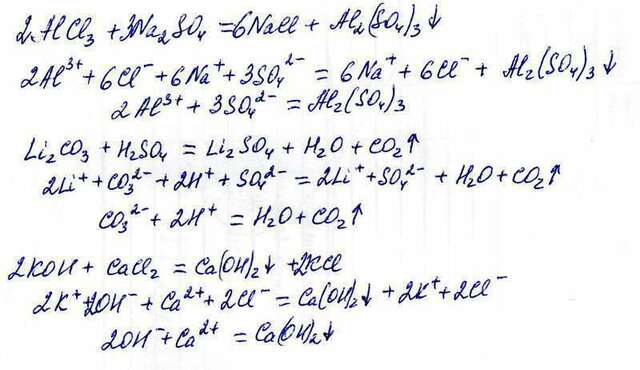 2AlCl₃ + 3Na₂SO₄ = 6NaCl + Al₂(SO₄)₃↓
2Al³⁺ + 6Cl⁻ + 6Na⁺ + 3SO₄²⁻ = 6Na⁺ + 6Cl⁻ + Al₂(SO₄)₃↓
2Al³⁺ + 3SO₄²⁻ = Al₂(SO₄)₃
Li₂CO₃ + H₂SO₄ = Li₂SO₄ + H₂O + CO₂↑
2Li⁺ + CO₃²⁻ + 2H⁺ + SO₄²⁻ = 2Li⁺ + SO₄²⁻ + H₂O + CO₂↑
CO₃²⁻ + 2H⁺ = H₂O + CO₂↑
2KOH + CaCl₂ = Ca(OH)₂↓ + 2KCl
2K⁺ + 2OH⁻ + Ca²⁺ + 2Cl⁻ = Ca(OH)₂↓ + 2K⁺ + 2Cl⁻
2OH⁻ + Ca²⁺ = Ca(OH)₂↓